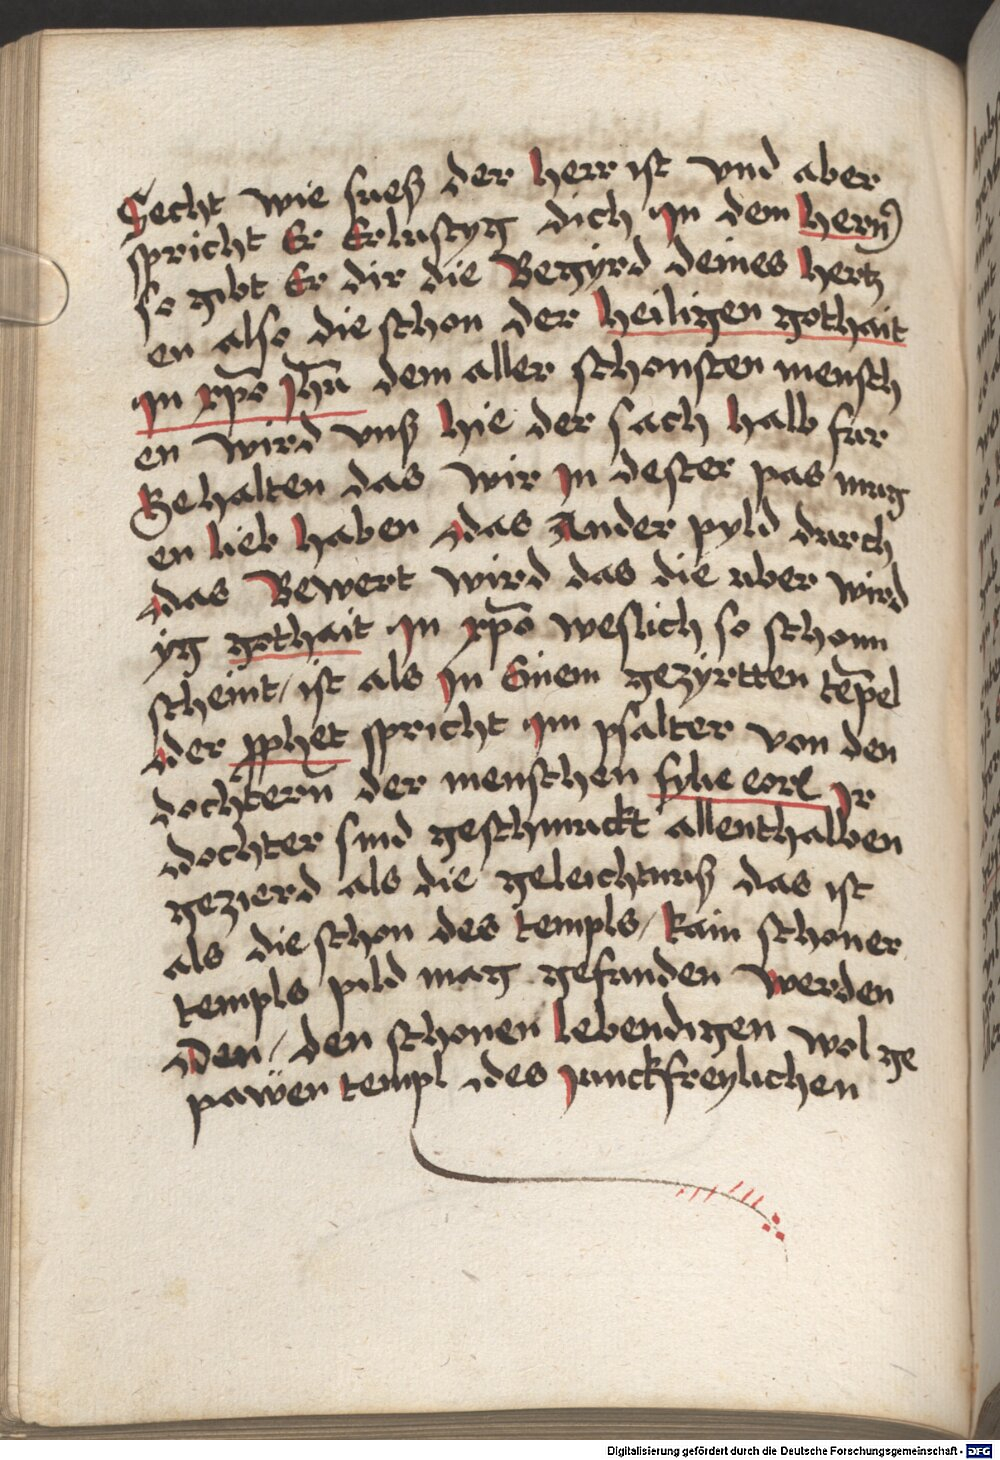 Secht wie sueß der herr ist vnd aber
spricht Er Erlustyg dich Jn dem hern
so gibt Er dir die Begyrd deines hertz
en also die schon der heiligen gothait
Jn xp̄o Jhū dem aller schonsten mensch
en wird vnß hie der sach halb fur
Gehalten das wir Jn dester pas mug
en lieb haben das Ander pyld durch
das Bewert wird das die uber wird
yg gothait Jn xp̄o weslich so schonn
scheint / ist als Jn Einem gezyrtten tēpel
der pphet spricht Jm psalter von den
dochtern der menschen fylie eorꝭ Jr
dochter sind geschmuckt allenthalben
gezierd als die geleichtnuß das ist
als die schon des templs / kain schoner
templs pild mag gefunden werden
Den / den schonen lebendigen wol ge
pawen templ des junckfreylichen
Digitalisierung gefördert durch die Deutsche Forschungsgemeinschaft - DFG